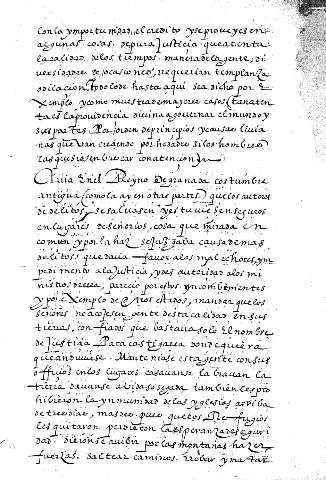 con la ynportunidad, el credito y se proveyesen
algunas cosas de pura Justicia que a tenta
la calidad de los tiempos manera de la gente, di
versidad de ocasiones, requerian templanza
o dilacion, todo lo de hasta aqui sea dicho por E
Xemplo y como muestra de mayores casos
ta es la providencia divina, governar el mundo y
sus partes, Por orden de principios y causas livia
nas que van cuando por hedades si los hombres
las quisiesen buscar con atencion
Avia En el Reyno de granada costumbre
antigua (como la ay en otras partes) que los autores
de delitos, se salvasen y estuviesen seguros
en lugares de señorios, cosa que mirada En
comun y por la haz se Juzgaba causa de mas
delitos que dava favor a los malhechores, ym
pedimento a la Justicia, y desautoridad a los mi
nistros de ella, parecio por estos ynconvinientes
y por Exemplo de otros estados, mandar que los
señores no acojesen gente desta calidad en sus
tierras, confiados que bastaria solo El nombre
de Justicia Para castigarla donde quiera
que anduviese. Manteniase esta gente con sus
officios en los lugares casavanse labravan la
tierra davanse a vida sosegada tambien les pro
hibieron la ynmunidad de las yglesias arriba
de tres dias, mas despues que los Refugios
les quitaron perdieron la esperanza de seguri
dad. dieronse a vibir por las montañas hazer
fuerzas. saltear caminos, Robar y matar